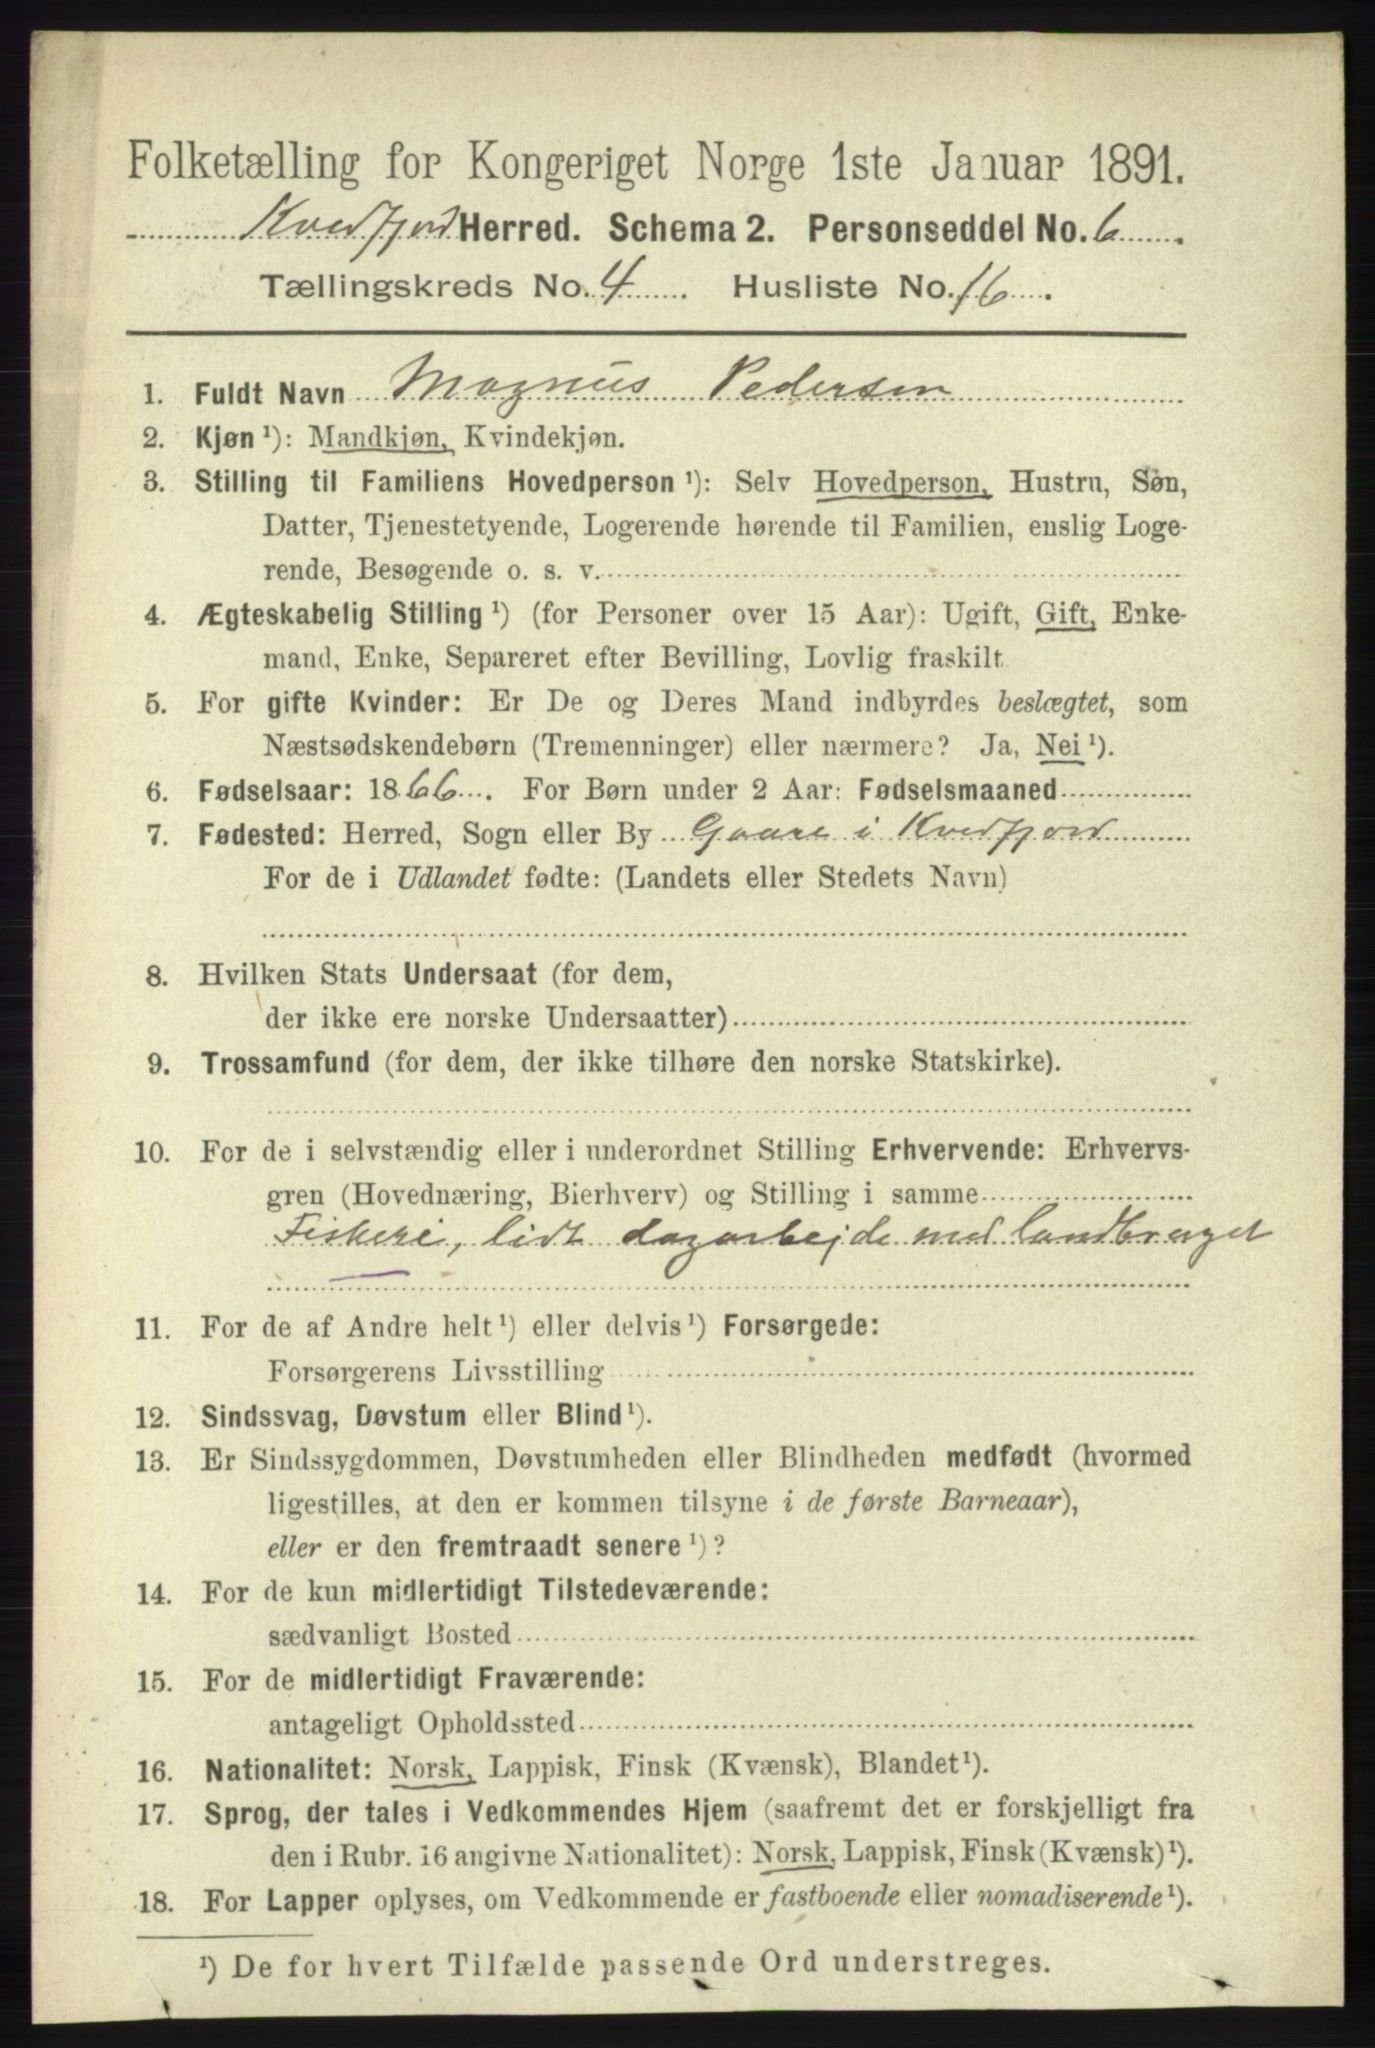 Folketælling for Kongeriget Norge 1ste Januar 1891.
Kvedfjord Herred. Schema 2. Personseddel No. 6
Tællingskreds No. 4 Husliste No. 16
1. Fuldt Navn Magnus Pedersen
2. Kjøn ¹): Mandkjøn, Kvindekjøn.
3. Stilling til Familiens Hovedperson ¹): Selv Hovedperson, Hustru, Søn,
Datter, Tjenestetyende, Logerende hørende til Familien, enslig Loge-
rende, Besøgende o. s. v.
4. Ægteskabelig Stilling ¹) (for Personer over 15 Aar): Ugift, Gift, Enke-
mand, Enke, Separeret efter Bevilling, Lovlig fraskilt.
5. For gifte Kvinder: Er De og Deres Mand indbyrdes beslægtet, som
Næstsødskendebørn (Tremenninger) eller nærmere? Ja, Nei ¹).
6. Fødselsaar: 1866. For Børn under 2 Aar: Fødselsmaaned
7. Fødested: Herred, Sogn eller By Gaare i Kvedfjord
For de i Udlandet fødte: (Landets eller Stedets Navn)
8. Hvilken Stats Undersaat (for dem,
der ikke ere norske Undersaatter)
9. Trossamfund (for dem, der ikke tilhøre den norske Statskirke).
10. For de i selvstændig eller i underordnet Stilling Erhvervende: Erhvervs-
gren (Hovednæring, Bierhverv) og Stilling i samme
Fiskeri, lidt dagarbejde med landbruget
11. For de af Andre helt ¹) eller delvis ¹) Forsørgede:
Forsørgerens Livsstilling
12. Sindssvag, Døvstum eller Blind ¹).
13. Er Sindssygdommen, Døvstumheden eller Blindheden medfødt (hvormed
ligestilles, at den er kommen tilsyne i de første Barneaar),
eller er den fremtraadt senere ¹)?
14. For de kun midlertidigt Tilstedeværende:
sædvanligt Bosted
15. For de midlertidigt Fraværende:
antageligt Opholdssted
16. Nationalitet: Norsk, Lappisk, Finsk (Kvænsk), Blandet ¹).
17. Sprog, der tales i Vedkommendes Hjem (saafremt det er forskjelligt fra
den i Rubr. 16 angivne Nationalitet): Norsk, Lappisk, Finsk (Kvænsk) ¹).
18. For Lapper oplyses, om Vedkommende er fastboende eller nomadiserende ¹).
¹) De for hvert Tilfælde passende Ord understreges.